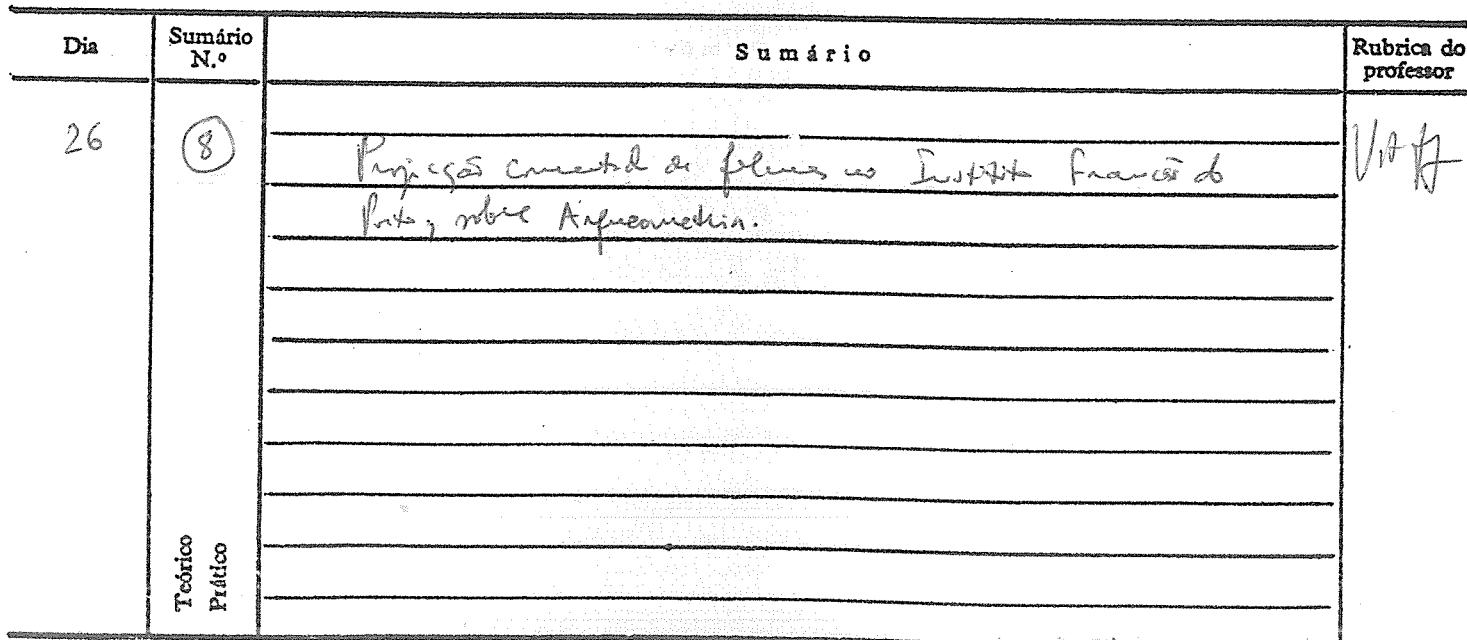 Dia
Sumário N.º
Sumário
Rubrica do professor
26
8
Projecção comentada de filmes no Instituto Francês do
Porto, sobre Arqueometria.
Teórico
Prático